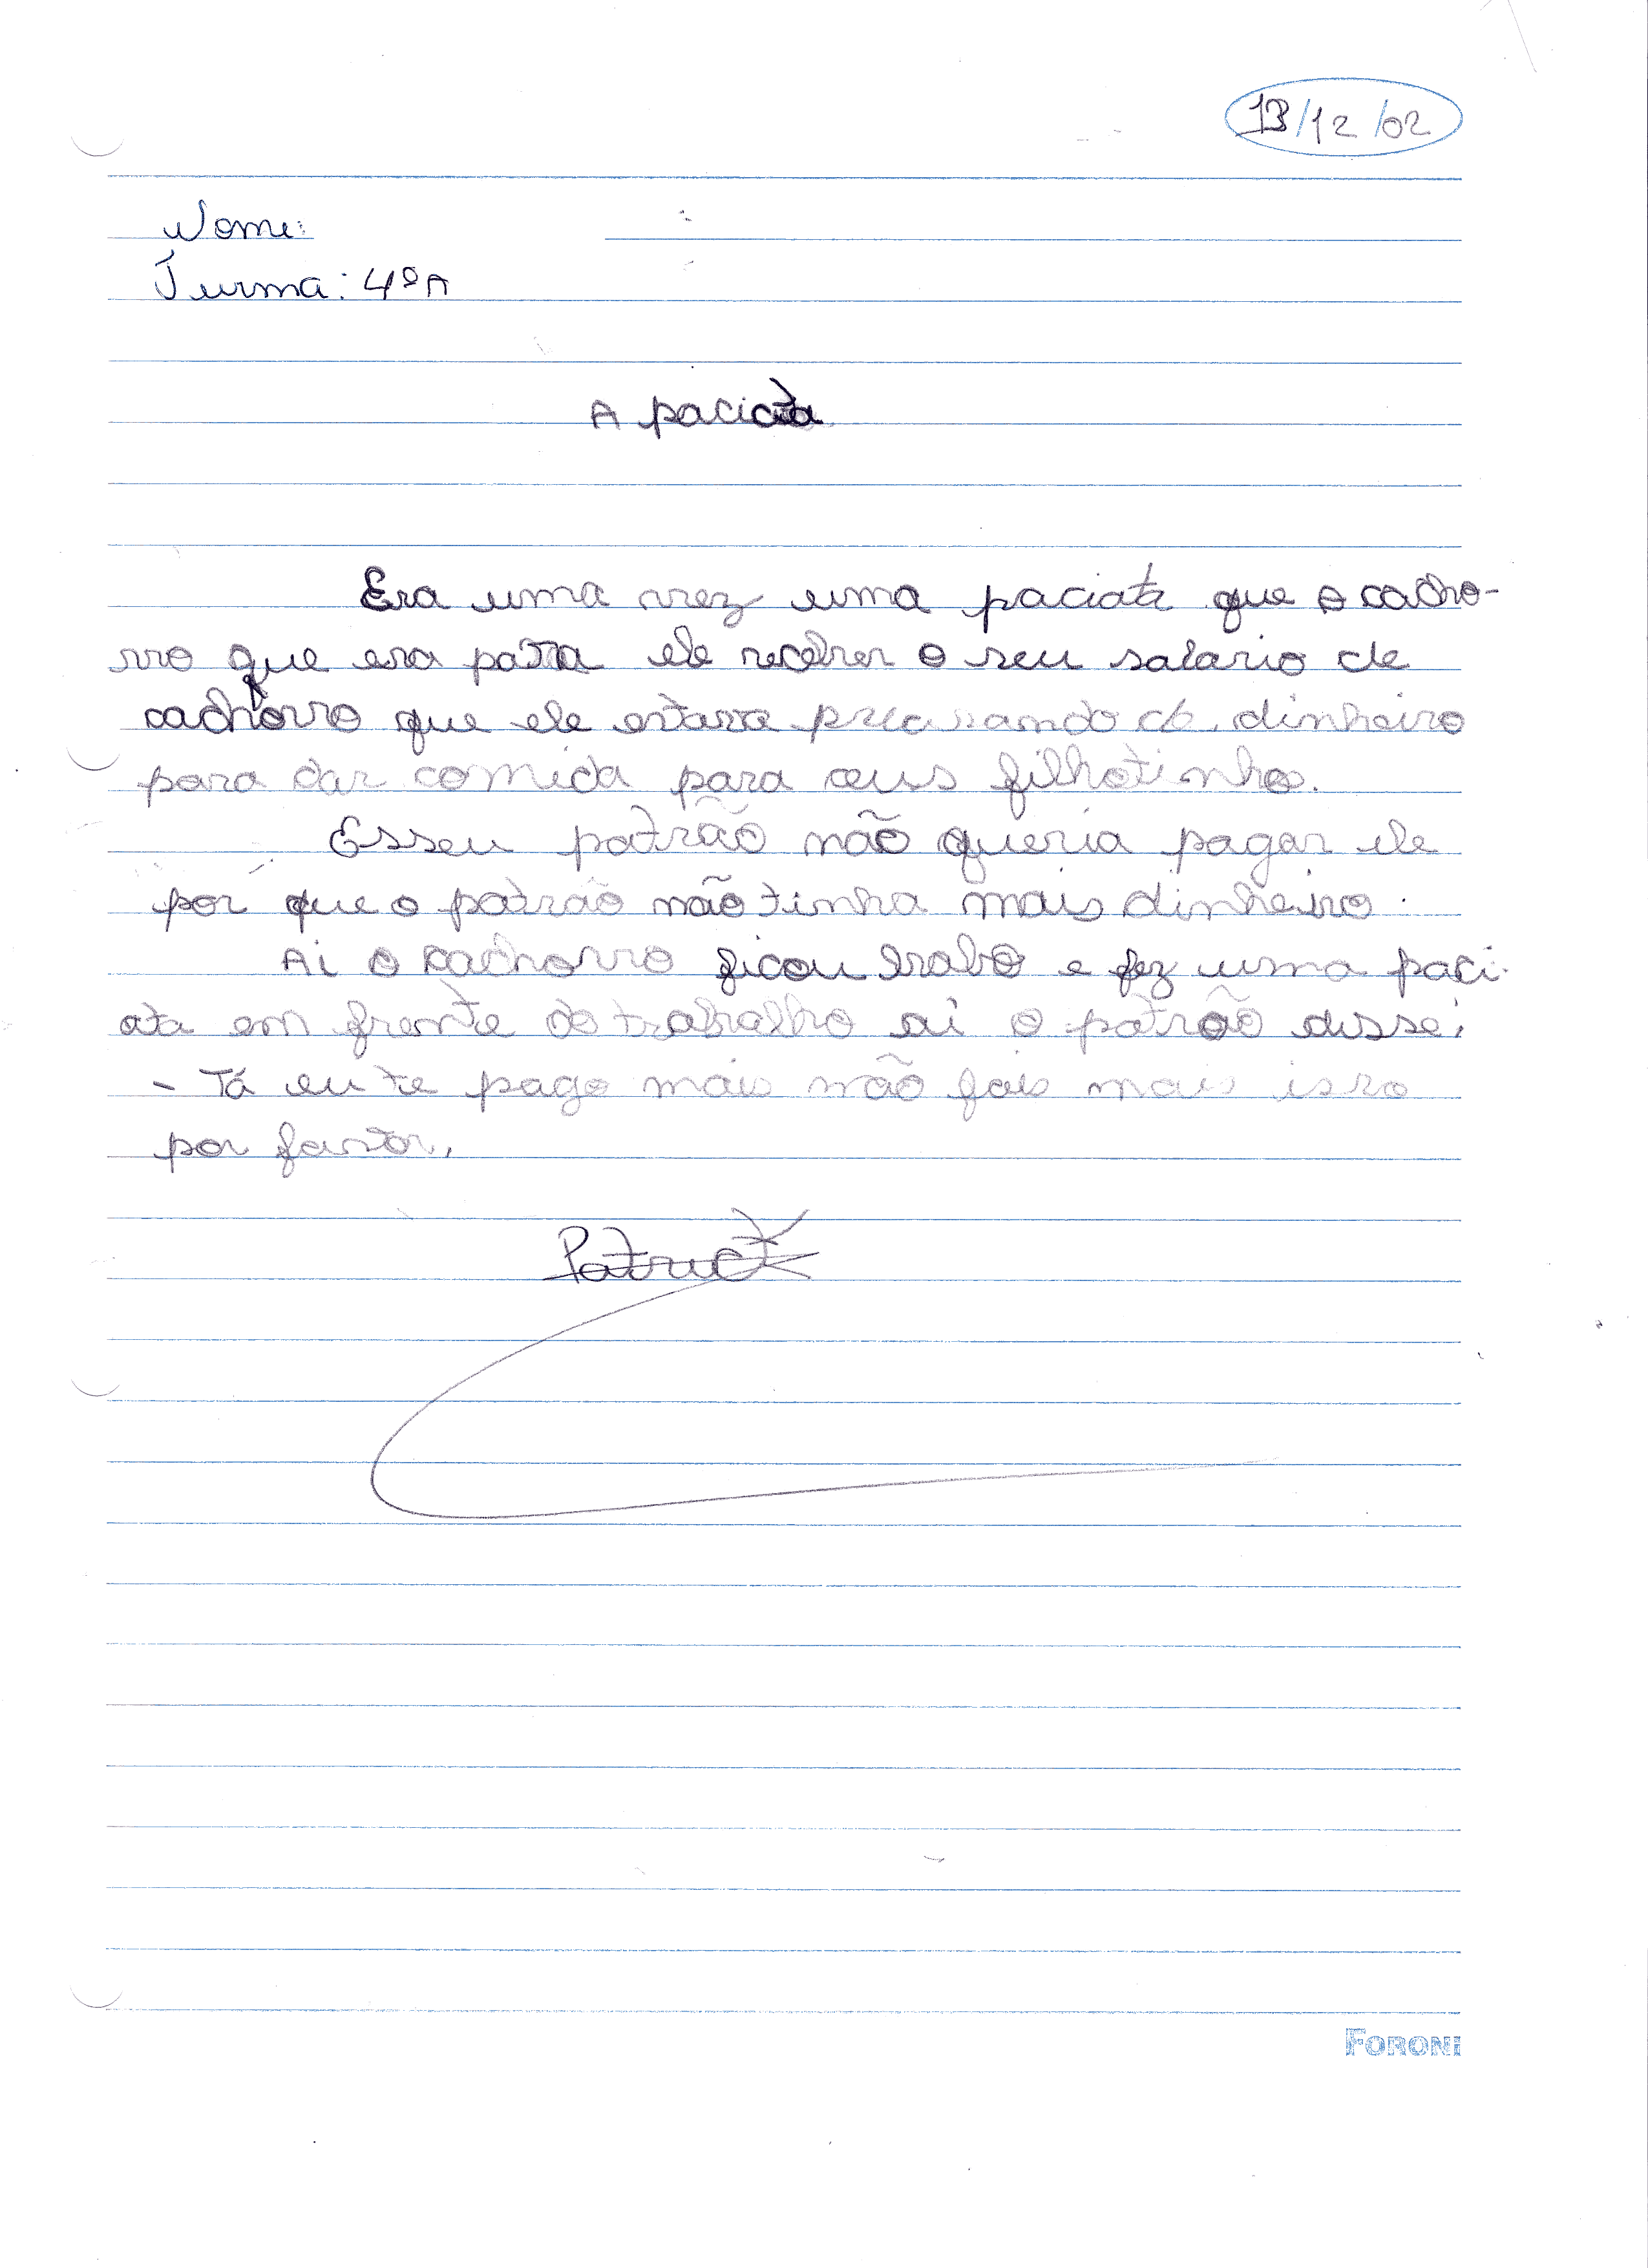 13/12/02
Nome:
Turma: 4ºA
A paciata
Era uma vez uma paciata que o cacho-
rro que era para ele receber o seu salario de
cachorro que ele estava precisando de dinheiro
para dar comida para ceus filhotinhos.
Esseu patrão não queria pagar ele
por que o patrão não tinha mais dinheiro.
Ai o cachorro ficou brabo e fez uma paci-
ata em frente do trabalho ai o patrão disse:
- Tá eu te pago mais não fais mais isso
por favor.
Patrick
FORONI